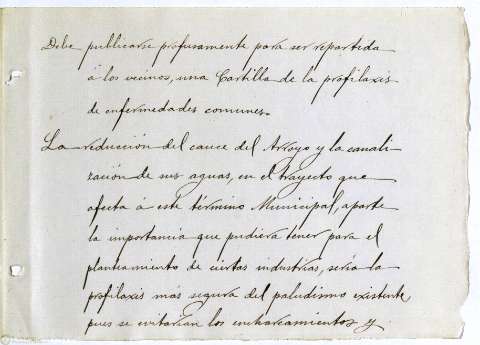 Debe publicarse profusamente para ser repartida
á los vecinos, una Cartilla de la profilaxis
de enfermedades comunes.
La reducción del cauce del Arroyo y la canali-
zación de sus aguas, en el trayecto que
afecta á este término Municipal, aparte
la importancia que pudiera tener para el
planteamiento de ciertas industrias, sería la
profilaxis más segura del paludismo existente,
pues se evitarían los encharcamientos y